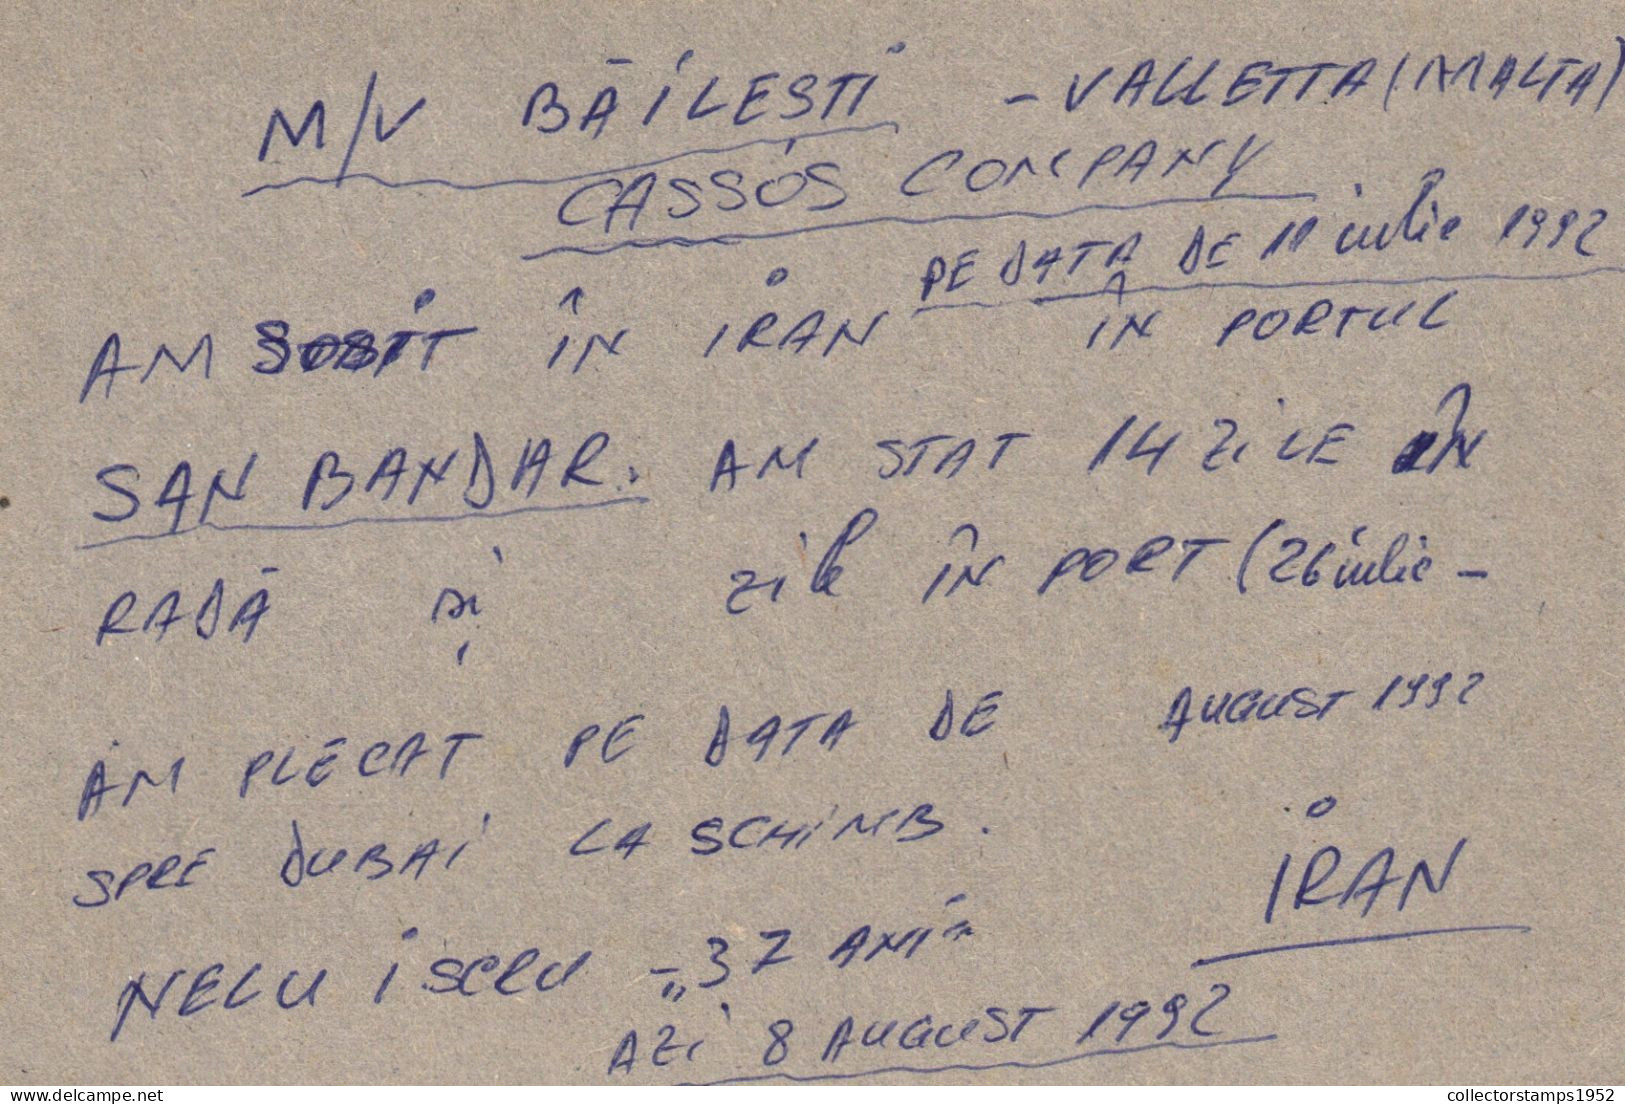 M/V BĂILEȘTI - VALLETTA (MALTA)
CASSOS COMPANY
PE DATA DE 11 iulie 1992
AM SOSIT ÎN IRAN ÎN PORTUL
SAN BANDAR. AM STAT 14 ZILE ÎN
RADĂ și zile ÎN PORT (26 iulie -
AM PLECAT PE DATA DE AUGUST 1992
SPRE DUBAI LA SCHIMB.
IRAN
NELU - „37 ANI"
AZI 8 AUGUST 1992
collectorstamps1952
delcampe.net